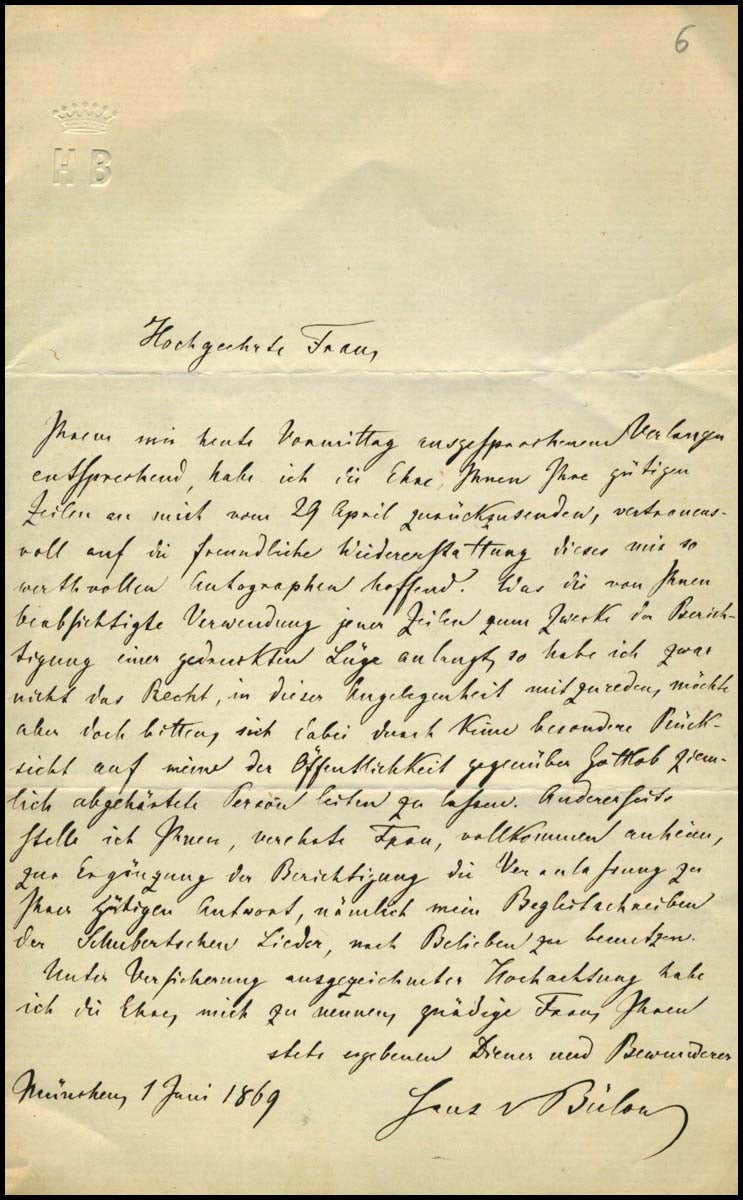 6
H B
Hochgeehrte Frau,
Ihrem mir heute Vormittag ausgesprochenem Verlangen
entsprechend, habe ich die Ehre, Ihnen Ihre gütigen
Zeilen an mich vom 29 April zurückzusenden, vertrauens-
voll auf die freundliche Wiedererstattung dieses mir so
werthvollen Autographen hoffend. Was die von Ihnen
beabsichtigte Verwendung jener Zeilen zum Zwecke der Berich-
tigung einer gedruckten Lüge anlangt, so habe ich zwar
nicht das Recht, in dieser Angelegenheit mitzureden, möchte
aber doch bitten, sich dabei durch keine besondere Rück-
sicht auf meine der Öffentlichkeit gegenüber Gottlob ziem-
lich abgehärtete Person leiten zu lassen. Andererseits
stelle ich Ihnen, verehrte Frau, vollkommen anheim,
zur Ergänzung der Berichtigung die Veranlassung zu
Ihrer gütigen Antwort, nämlich mein Begleitschreiben
der Schubertschen Lieder, nach Belieben zu benutzen.
Unter Versicherung ausgezeichneter Hochachtung habe
ich die Ehre, mich zu nennen, gnädige Frau, Ihren
stets ergebenen Diener und Bewunderer
München, 1 Juni 1869
Hans v Bülow